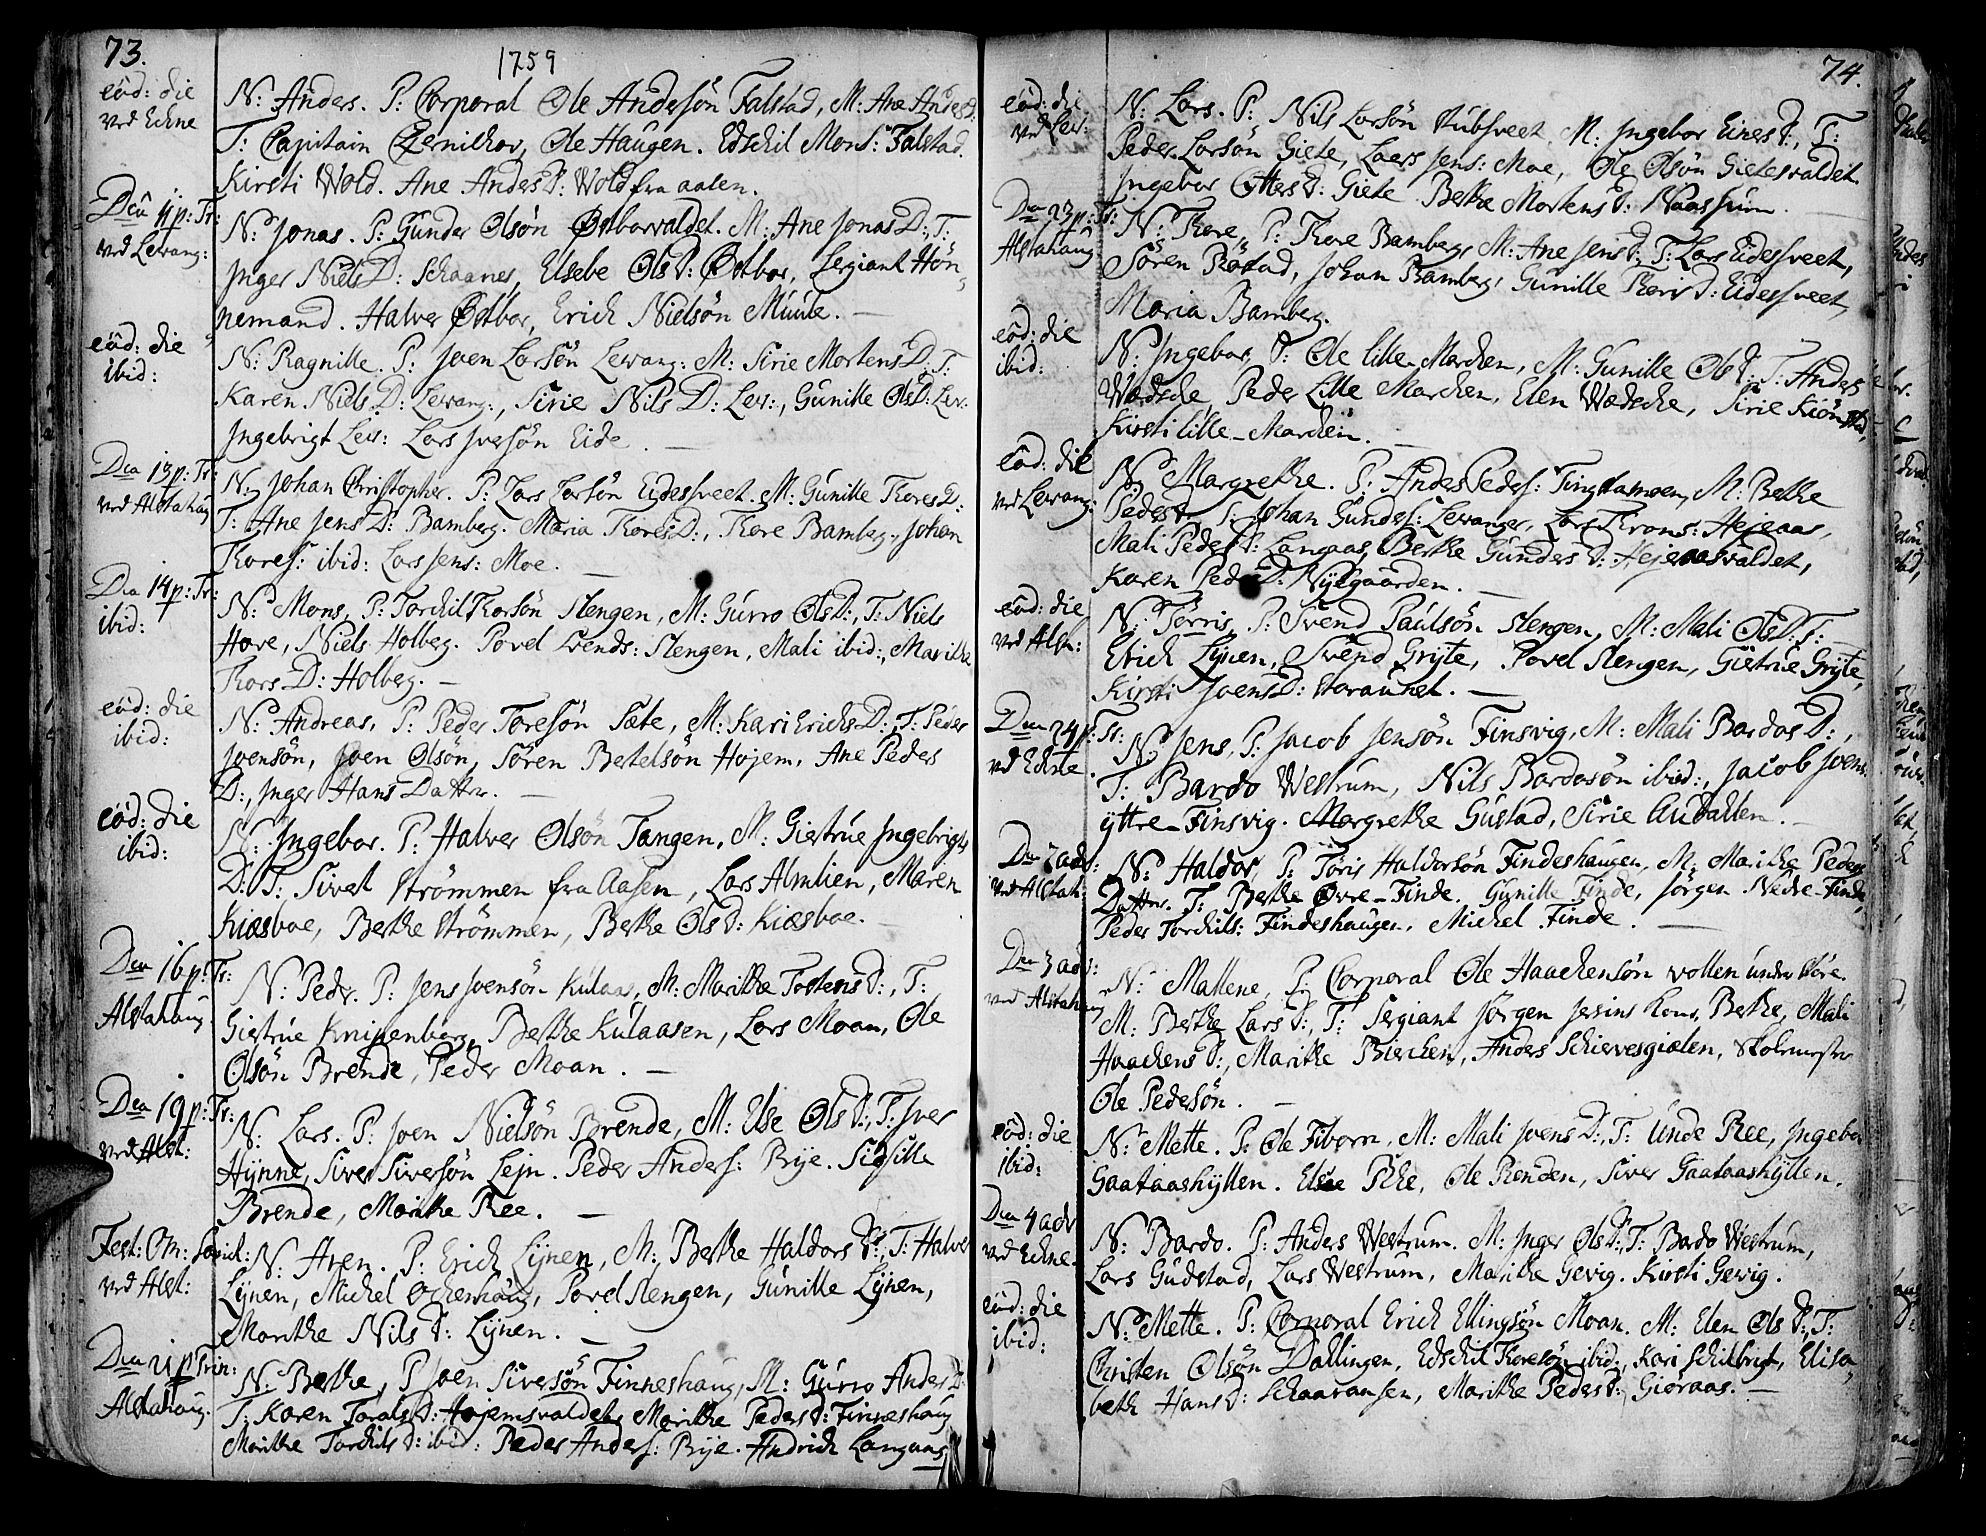 73.
1759
eod: die
ved Echne
N: Anders. P: Corporal Ole Andersön Falstad, M: Ane Anders D:
T: Capitain Ole Haugen. Edschil Mons: Falstad.
Kirsti Wold. Ane Anders D: Wold fra aalen.
Den 11 p: Tr:
ved Lewang:
N: Jonas. P: Gunder Olsön Østborvaldet. M: Ane Jonas D: T:
Inger Niels D: Schaanes, Elsebe Ols D: Østbor, Sergiant Hön-
nemand. Halver Østbor, Erich Nielsön Muule.
eod: die
ibid:
N: Ragnille. P: Joen Larsön Lewang: M: Sirie Mortens D: T:
Karen Niels D: Lewang:, Sirie Nils D: Lew:, Gunille Ols D: Lew:
Ingebrigt Lew: Lars Iversön Eide.
Den 13 p: Tr:
ved Alstahaug
N: Johan Christopher. P: Lars Larsön Eidessveet. M: Gunille Thores D:
T: Ane Jens D: Bamberg. Maria Thores D:, Thore Bamberg, Johan
Thores: ibid: Lars Jens: Moe.
Den 14 p: Tr:
ibid:
N: Mons, P: Torchil Thorsön Stengen, M: Gurro Ols D:, T: Niels
Hove, Niels Holberg. Povel Svends: Stengen, Mali ibid:, Marithe
Thors D: Holberg.
eod: die
ibid:
N: Andreas, P: Peder Toresön Sæte, M: Kari Erichs D:, T: Peder
Joensön, Joen Olsön, Sören Betelsön Hojem, Ane Peders
D:, Inger Hans Datter.
eod: die
ibid:
N: Ingebor. P: Halver Olsön Tangen, M: Giertrue Ingebrigts
D: T: Sivel Strömmen fra Aasen, Lars Almlien, Maren
Kiæsboe, Berthe Strömmen, Berthe Ols D: Kiæsboe.
Den 16 p: Tr:
Alstahaug
N: Peder. P: Jens Joensön Kulaas, M: Marithe Tostens D:, T:
Giertrue Knipenberg, Berthe Kulaasen, Lars Moan, Ole
Olsön Brende, Peder Moan.
Den 19 p: Tr:
ved Alst:
N: Lars. P: Joen Nielsön Brende, M: Else Ols D:, T: Iver
Hynne, Siver Siversön Lejn. Peder Anders: Rye. Sidsille
Brende, Marithe Ree.
Fest: Om: Sanct:
ved Alst:
N: Aren. P: Erich Lynen, M: Berthe Haldors D:, T: Halver
Lynen, Michel Ochenhaug, Povel Stengen, Gunille Lynen,
Marithe Nils D: Lynen.
Den 21 p Trin:
Alstahaug.
N: Berthe, P: Joen Siversön Finneshaug, M: Gurro Anders D:
T: Karen Torals D: Hojemsvaldet, Marithe Peders D: Finneshaug
Marithe Torchils D: ibid: Peder Anders: Rye. Hndrich Langaas
74.
eod: die
ved Lew:
N: Lars. P: Nils Larsön Stubsveet, M: Ingebor Eines D:, T:
Peder Larsön Giete, Laers Jens: Moe, Ole Olsön Gietesvaldet.
Ingebor Otters D: Giete Berthe Mortens D: Naassum.
Den 23 p: Tr:
Alstahaug
N: Thore, P: Thore Bamberg, M: Ane Jens D: T: Lars Eidessveet,
Sören Röstad, Johan Bamberg, Gunille Thors D: Eidessveet,
Maria Bamberg.
eod: die
ibid:
N: Ingebor, P: Ole lille-Marchen, M: Gunille Ols D: T: Anders
Wædsche Peder Lille Marchen, Elen Wædsche, Sirie Kiönstad,
Kirsti lille-Marchen.
eod: die
ved Lewang:
N: Margrethe. P: Anders Peders: Tingstamoen, M: Berthe
Peders D: T: Johan Gunders: Lewanger, Lars Thrones: Hejeaas,
Mali Peders D: Langaas, Berthe Gunders D: Hejeaasvaldet,
Karen Peders D: Nyegaarden.
eod: die
ved Alst:
N: Törris, P: Svend Paulsön Stengen, M: Mali Ols D: T:
Erich Lynen, Svend Gryte, Povel Stengen, Giertrue Gryte,
Kirsti Joens D: Haraunet.
Den 24 p: Tr:
ved Echne
N: Jens, P: Jacob Jensön Finsvig, M: Mali Bardos D:,
T: Bardo Westrum, Nils Bardosön ibid:, Jacob Joens:
yttre-Finsvig. Margrethe Gustad, Sirie Audallen.
Den 2 adv:
ved Alstah:
N: Haldor, P: Töris Haldorsön Findeshaugen, M: Marithe Peders
Datter. T: Berthe Øvre-Finde. Gunille Finde, Jörgen Nedre-Finde,
Peder Torchils: Findeshaugen. Michel Finde.
Den 3 adv:
ved Alstahaug
N: Mallene, P: Corporal Ole Haachensön vollen under
M: Berthe Lars D:, T: Sergiant Jörgen Berthe, Mali
Haachens D:, Marithe Bierchen, Anders Schiervesgiælen, Skolemester
Ole Pedersön.
eod: die
ibid:
N: Mette. P: Ole Fiborn, M: Mali Joens D:, T: Unde Ree, Ingebor
Gaataashyllen. Elsae Rhe, Ole Renden, Siver Gaataashyllen.
Den 4 adv
ved Echne.
N: Bardo. P: Anders Westrum. M: Inger Ols D:, T: Bardo Westrum,
Lars Gudstad, Lars Westrum, Marithe Gevig. Kirsti Gevig.
eod: die
ibid:
N: Mette. P: Corporal Erich Ellingsön Moan. M: Elen Ols D:, T:
Christen Olsön Dallingen, Edschil Thoresön ibid:, Kari Schilbrigt, Elisa-
beth Hans D: Schaaransen, Marithe Peders D: Gioraas.